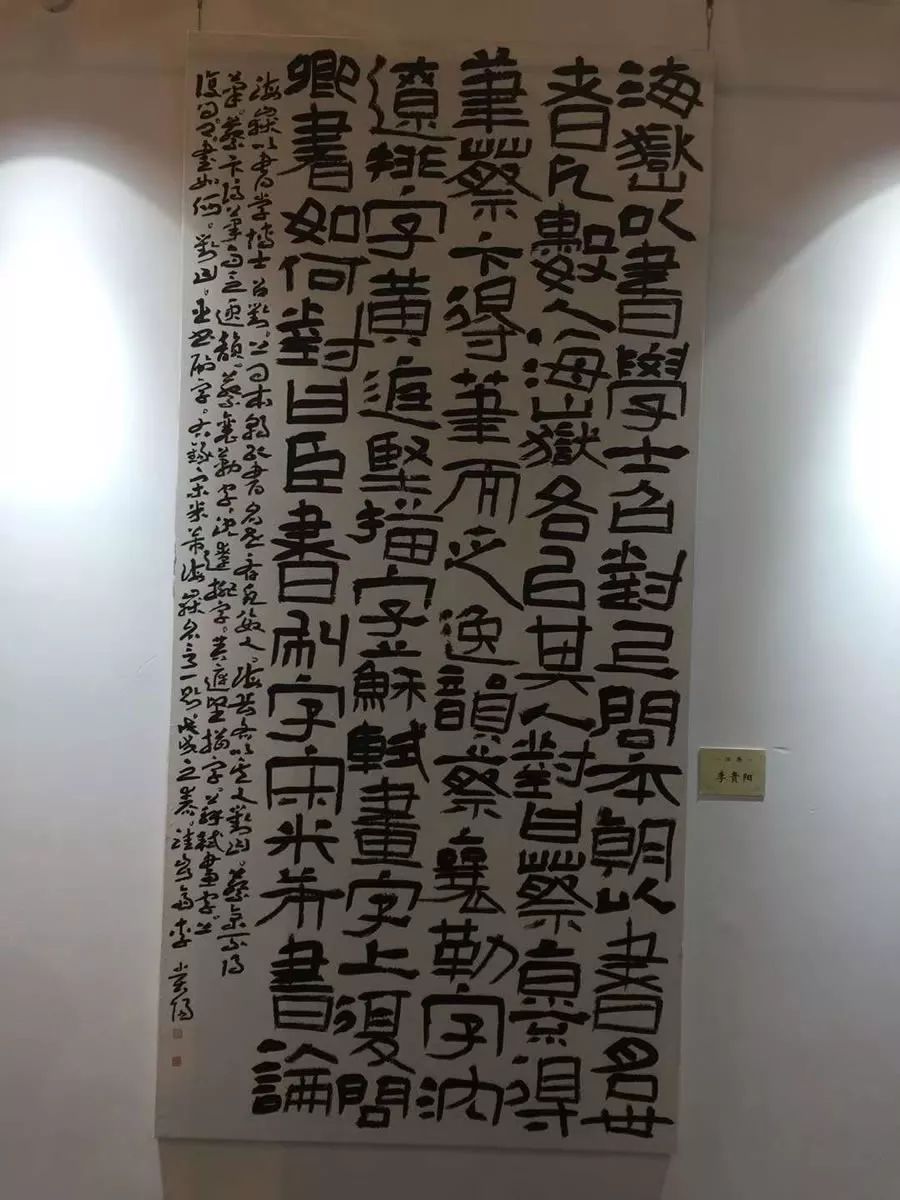 海嶽以書學士召對上問本朝以書名世
者凡數人海嶽各以其人對曰蔡京得
筆蔡卞得筆而乏逸韻蔡襄勒字沈
遼排字黃庭堅描字蘇軾畫字上復問
卿書如何對曰臣書刷字宋米芾書論
海嶽以書学博士召對上问本朝以書名世者凡數人海岳各以其人對曰蔡京不得
筆蔡卞得筆而乏逸韻蔡襄勒字沈遼排字黃庭堅描字蘇軾畫字上
復问卿書如何對曰臣書刷字右錄宋米芾海嶽名言一則李贵陽
李貴阳